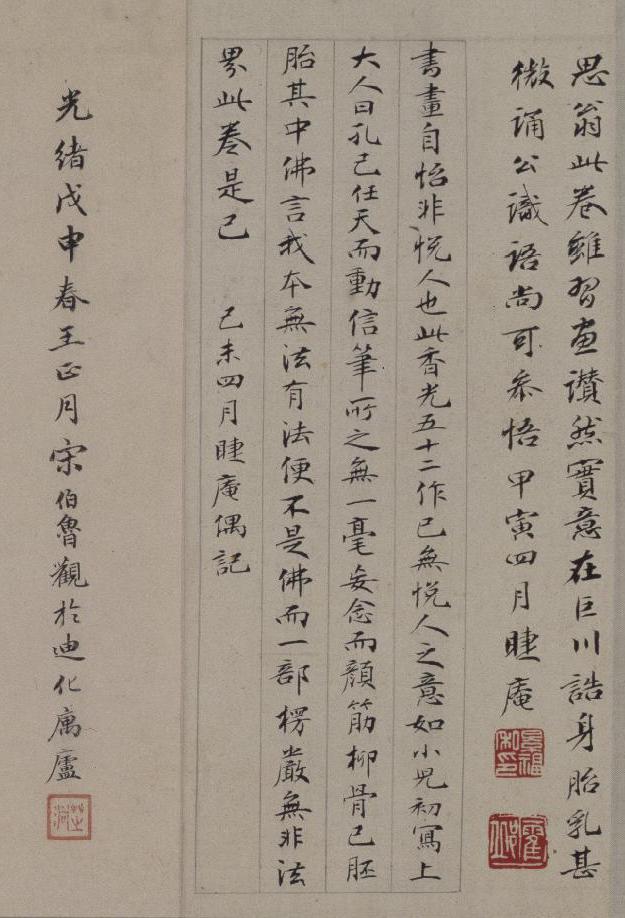 思翁此卷雖習画讃然實意在巨川誥身胎乳甚
微誦公識語尚可叅悟甲寅四月睫庵
景福私印
書畫自怡非悅人也此香光五十二作已無悅人之意如小兒初寫上
大人曰孔己任天而動信筆所之無一毫妄念而顏筋柳骨已胚
胎其中佛言我本無法有法便不是佛而一部楞嚴無非法
界此卷是已 己未四月睫庵偶記
光緒戊申春王正月宋伯魯觀於迪化寓廬
芝洞